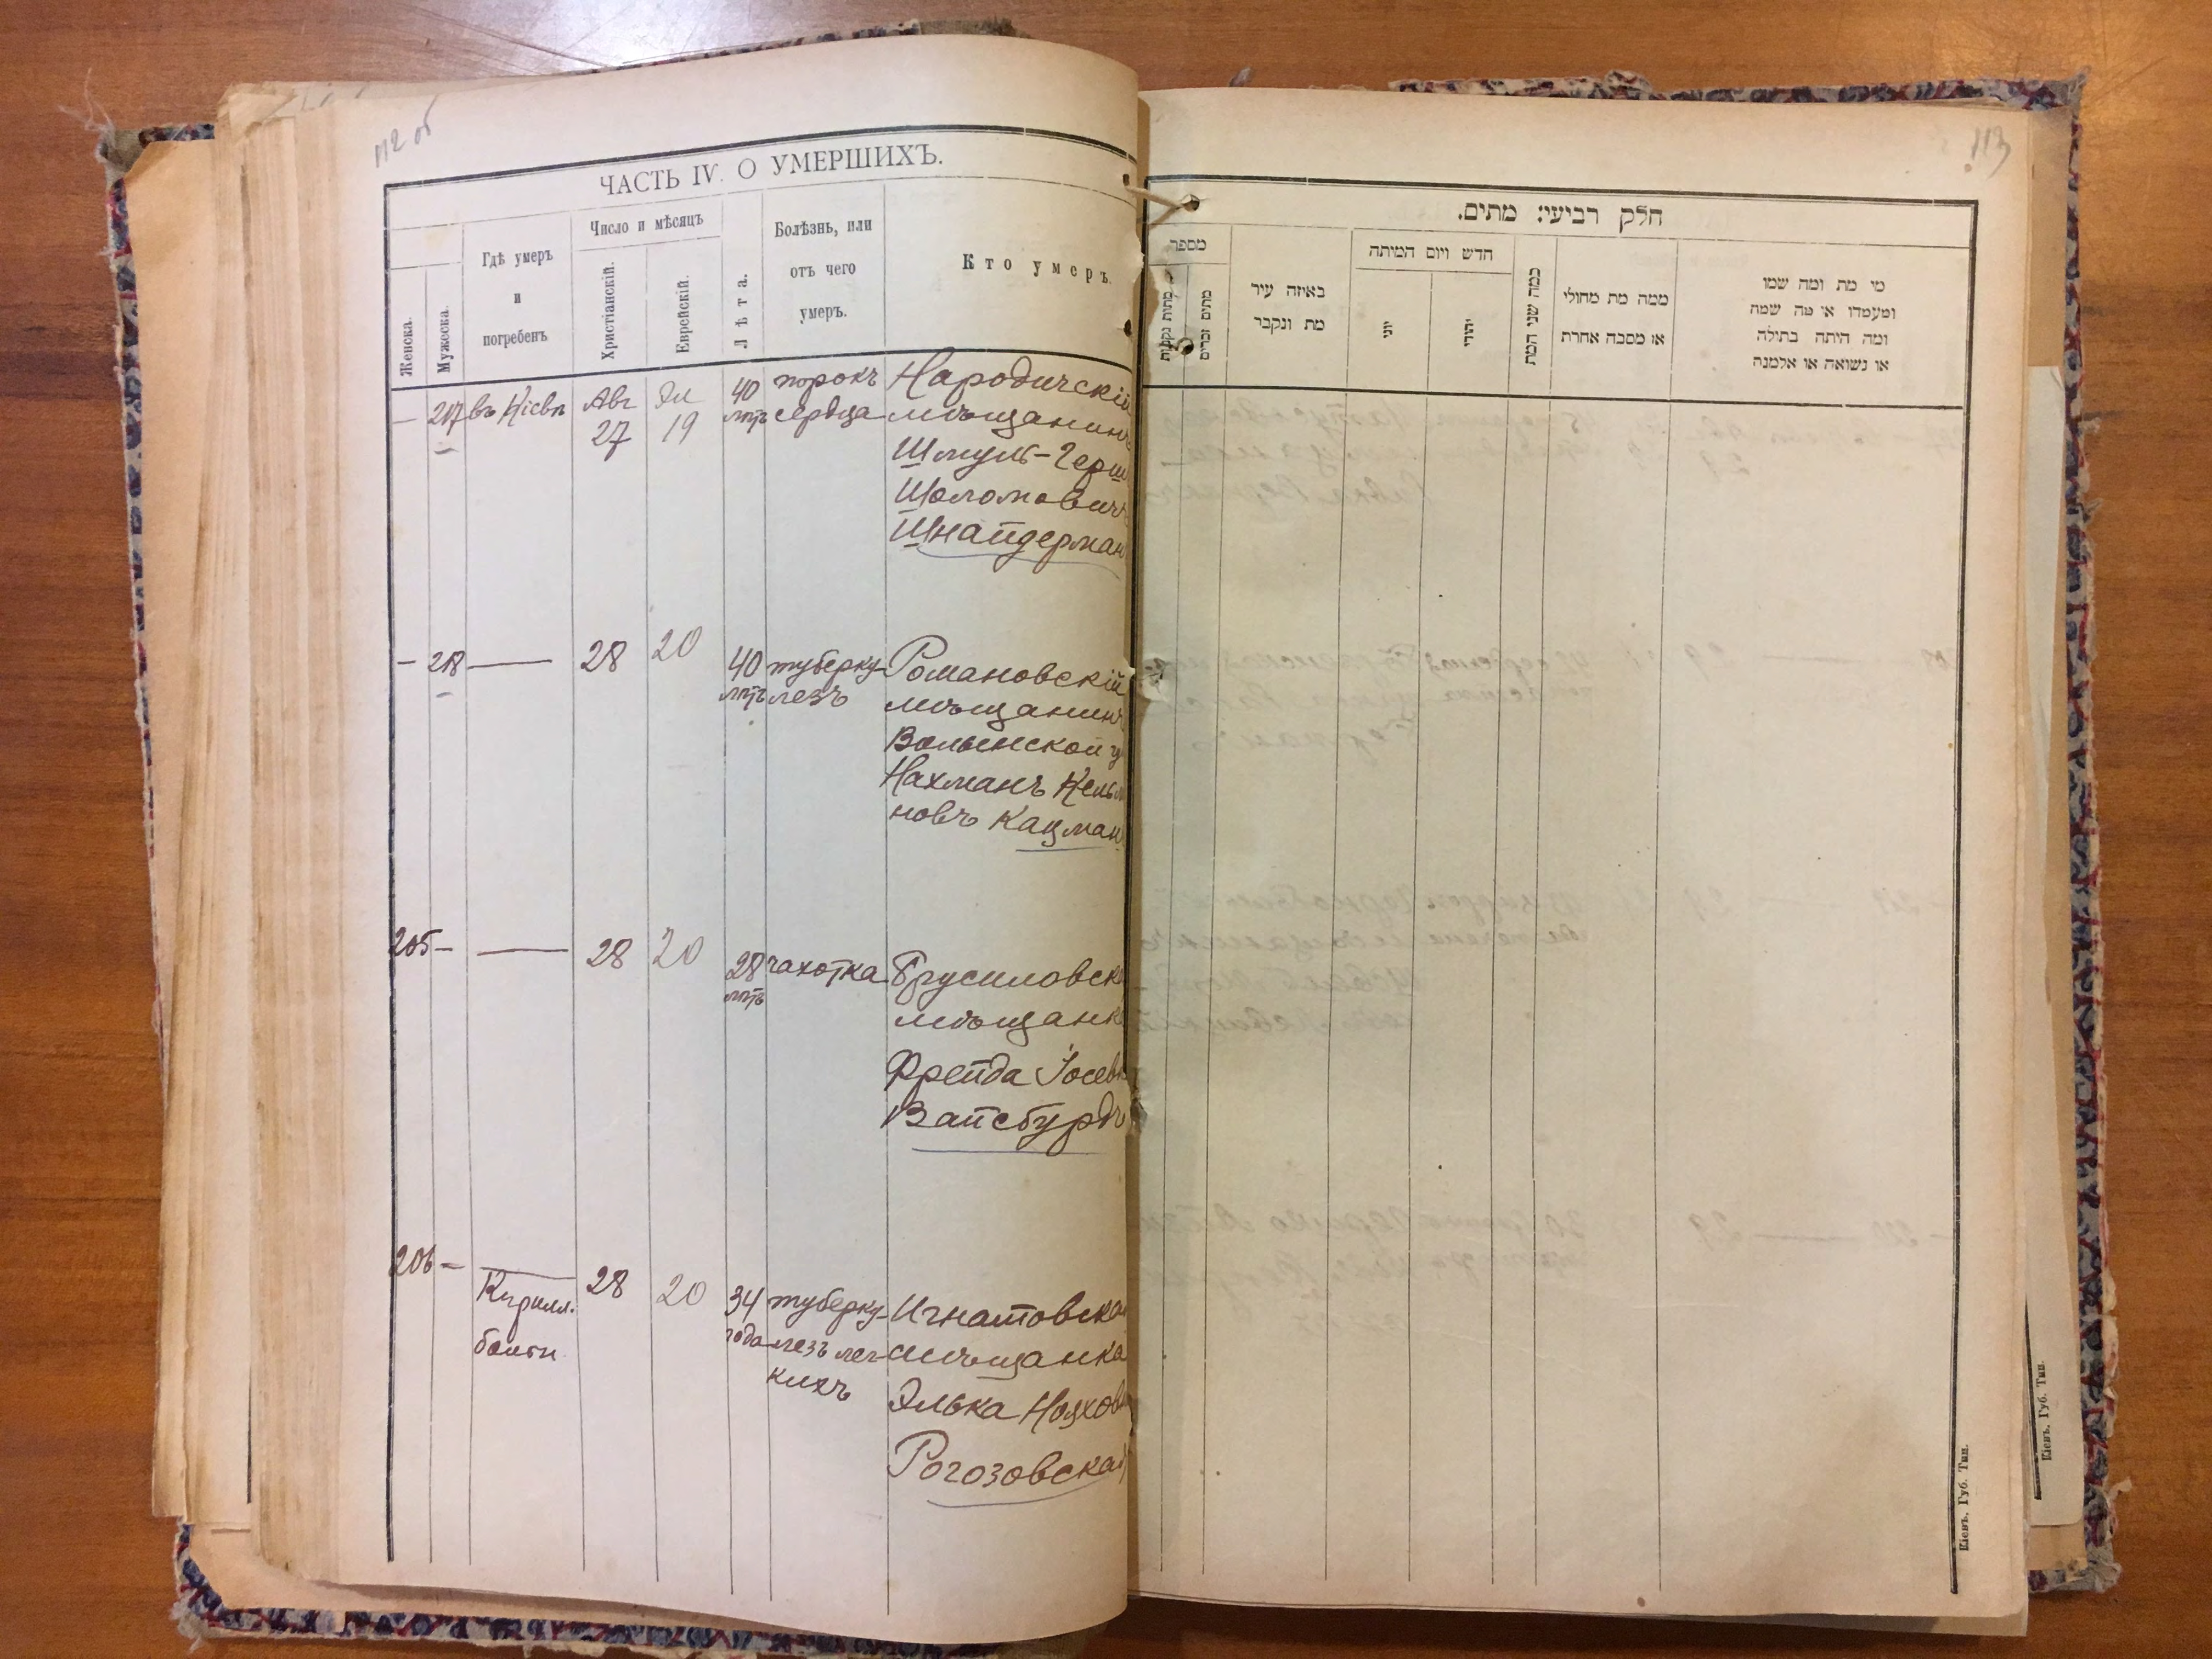 112 об
ЧАСТЬ IV. О УМЕРШИХЪ.
Женска.
Мужеска.
Гдѣ умеръ
и
погребенъ
Число и мѣсяцъ
Христіанскій.
Еврейскій.
Лѣта.
Болѣзнь, или
отъ чего
умеръ.
Кто умеръ.
— 217 въ Кіевѣ Авг 27 Эл 19 40 лѣтъ порокъ сердца
Народичскій
мѣщанинъ
Шмуль-Герш
Шоломовичъ
Шнайдерман
— 218 — 28 20 40 лѣтъ туберку-
лезъ
Романовскій
мѣщанинъ
Волынской г
Нахманъ Кельм
новъ Кацман
205 — — 28 20 28 лѣтъ чахотка
Брусиловск
мѣщанк
Фрейда Іосев
Вайсбурдъ
206 — — 28 20 34 года туберку-
Кирилл.
больн
лезъ лег-
кихъ
Игнатовская
мѣщанка
Элька Нояхов
Рогозовская
113
חלק רביעי: מתים.
מספר
מתות נקבות
מתים זכרים
באיזה עיר
מת ונקבר
חדש ויום המיתה
יוני
יהודי
כמה שני המת
ממה מת מחולי
או מסבה אחרת
מי מת ומה שמו
ומעמדו או מה שמה
ומה היתה בתולה
או נשואה או אלמנה
Кіевъ, Губ. Тип.
Кіевъ, Губ. Тип.